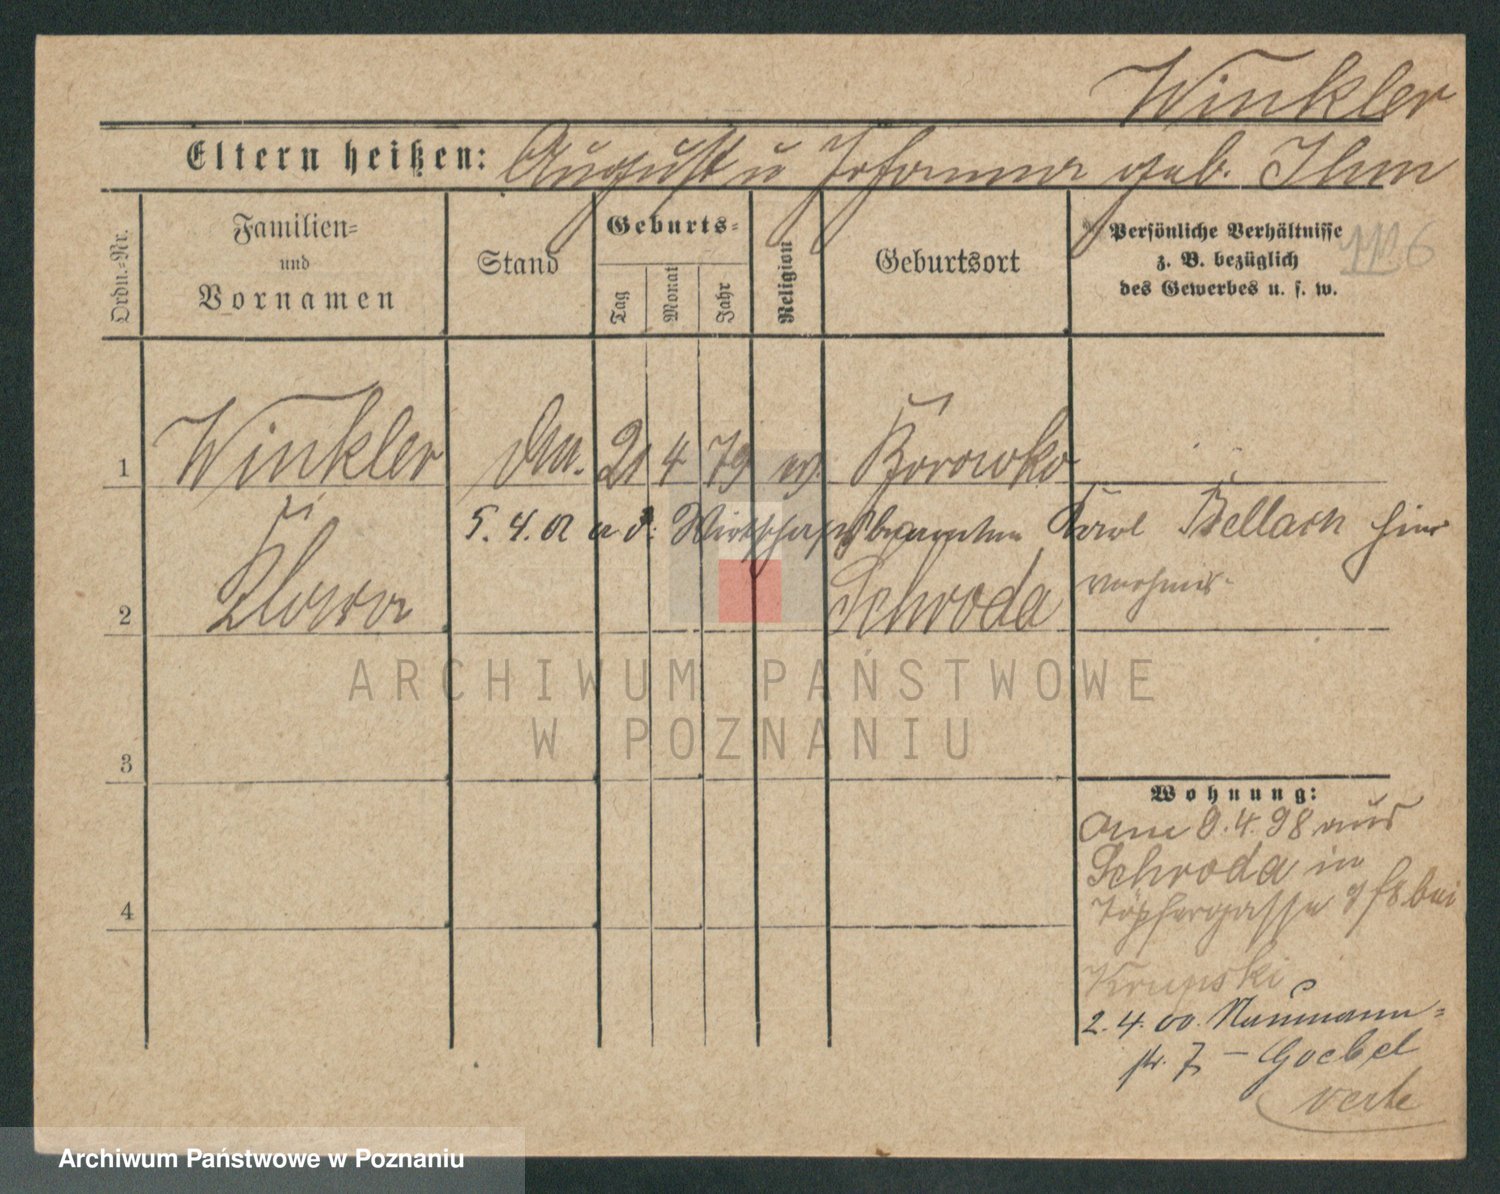 Winkler
Eltern heißen: August u Johanna geb. Ihm
Ordn.-Nr.
Familien-
und
Vornamen
Stand
Geburts-
Tag
Monat
Jahr
Religion
Geburtsort
Persönliche Verhältnisse
z. B. bezüglich
des Gewerbes u. s. w.
116
1 Winkler 21 4 79 ev. Borowko
5. 4. 01 a d. Wirtschaftsbeamten Karl Bellach hier
verheir.
2 Klara Schroda
3
4
Wohnung:
Am 9.4.98 aus
Schroda in
Töpfergasse bei
Krupski
2. 4. 00. Naumann-
str. 7 – Goebel
verte
ARCHIWUM PAŃSTWOWE
W POZNANIU
Archiwum Państwowe w Poznaniu